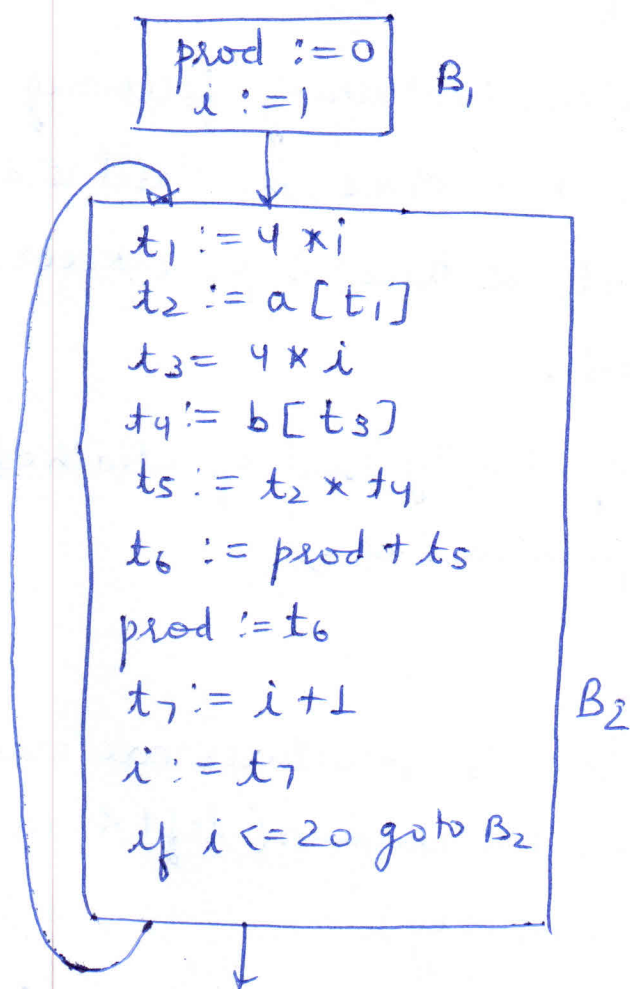 prod := 0
i := 1
B1
t1 := 4 * i
t2 := a [t1]
t3 = 4 * i
t4 := b [t3]
t5 := t2 * t4
t6 := prod + t5
prod := t6
t7 := i + 1
i := t7
B2
if i <= 20 goto B2